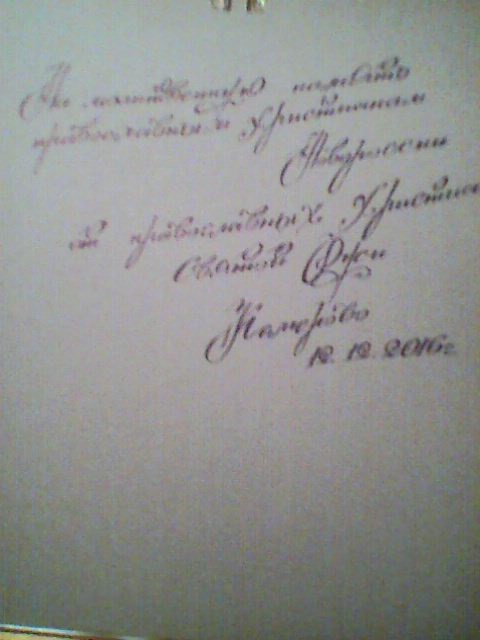 На молитвенную память
православным Христианам
Новороссии
от православных Христиан
Святой Руси
Кемерово
12.12.2016г.